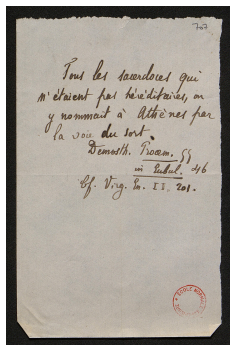 707
Tous les sacerdoces qui
n'étaient pas héréditaires, on
y nommait à Athènes par
la voie du sort.
Demosth. Prooem. 55
in Eubul. 46
Cf. Virg. En. II, 201.